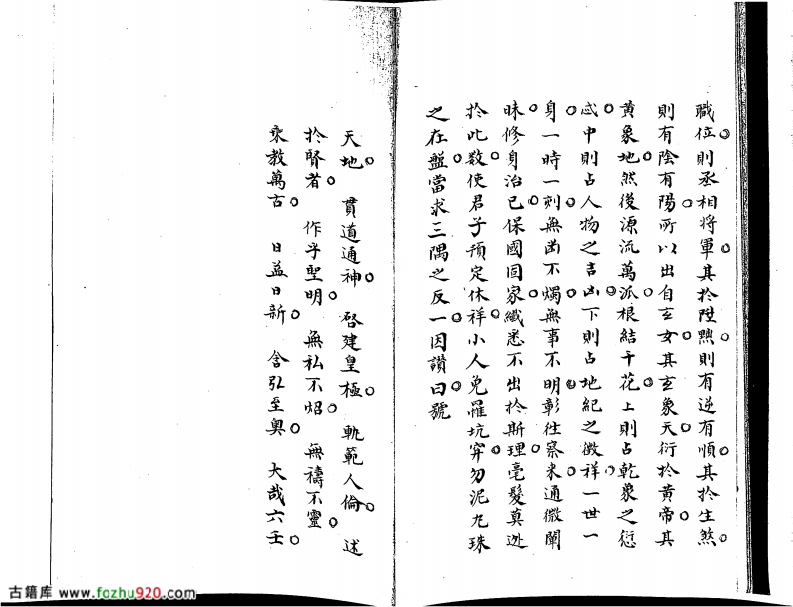 職位則丞相將軍其於陞黜則有逆有順其於生煞
則有陰有陽所以出自玄女其玄象天衍於黃帝其
黃象地然後源流萬派根結千花上則占乾象之愆
忒中則占人物之吉凶下則占地紀之徵祥一世一
身一時一刻無幽不燭無事不明彰往察来通微闡
昧修身治己保國同家纖悉不出於斯理毫髮莫逃
於此数使君子預定休祥小人免羅坑穽勿泥九珠
之在盤當求三隅之反一因讚曰號
天地 貫道通神 啓建皇極 軌範人倫 述
於賢者 作乎聖明 無私不炤 無禱不靈
乘教萬古 日益日新 含弘至奧 大哉六壬
古籍库 www.fozhu920.com